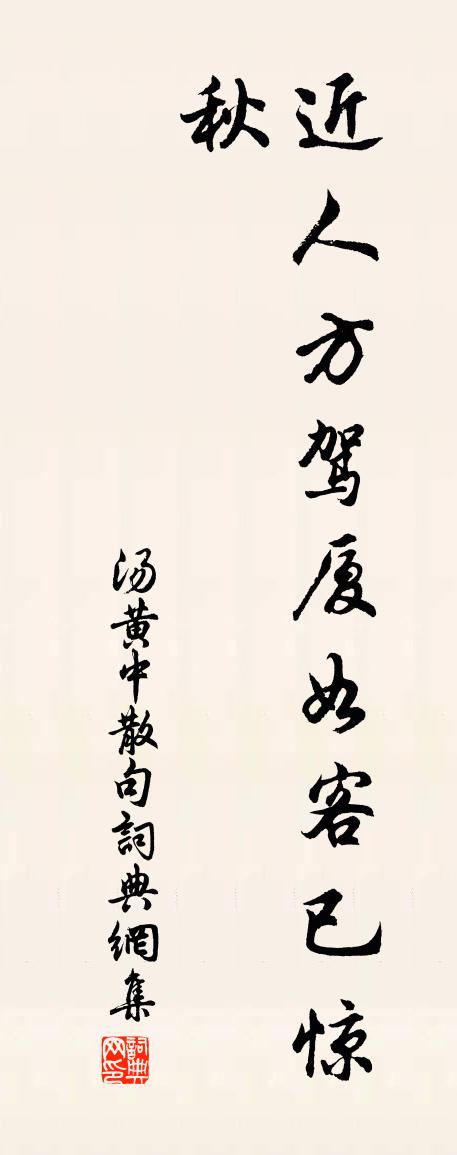 近人方驾厦如客已惊
秋
汤黄中散句詞典網集
詞典
网印